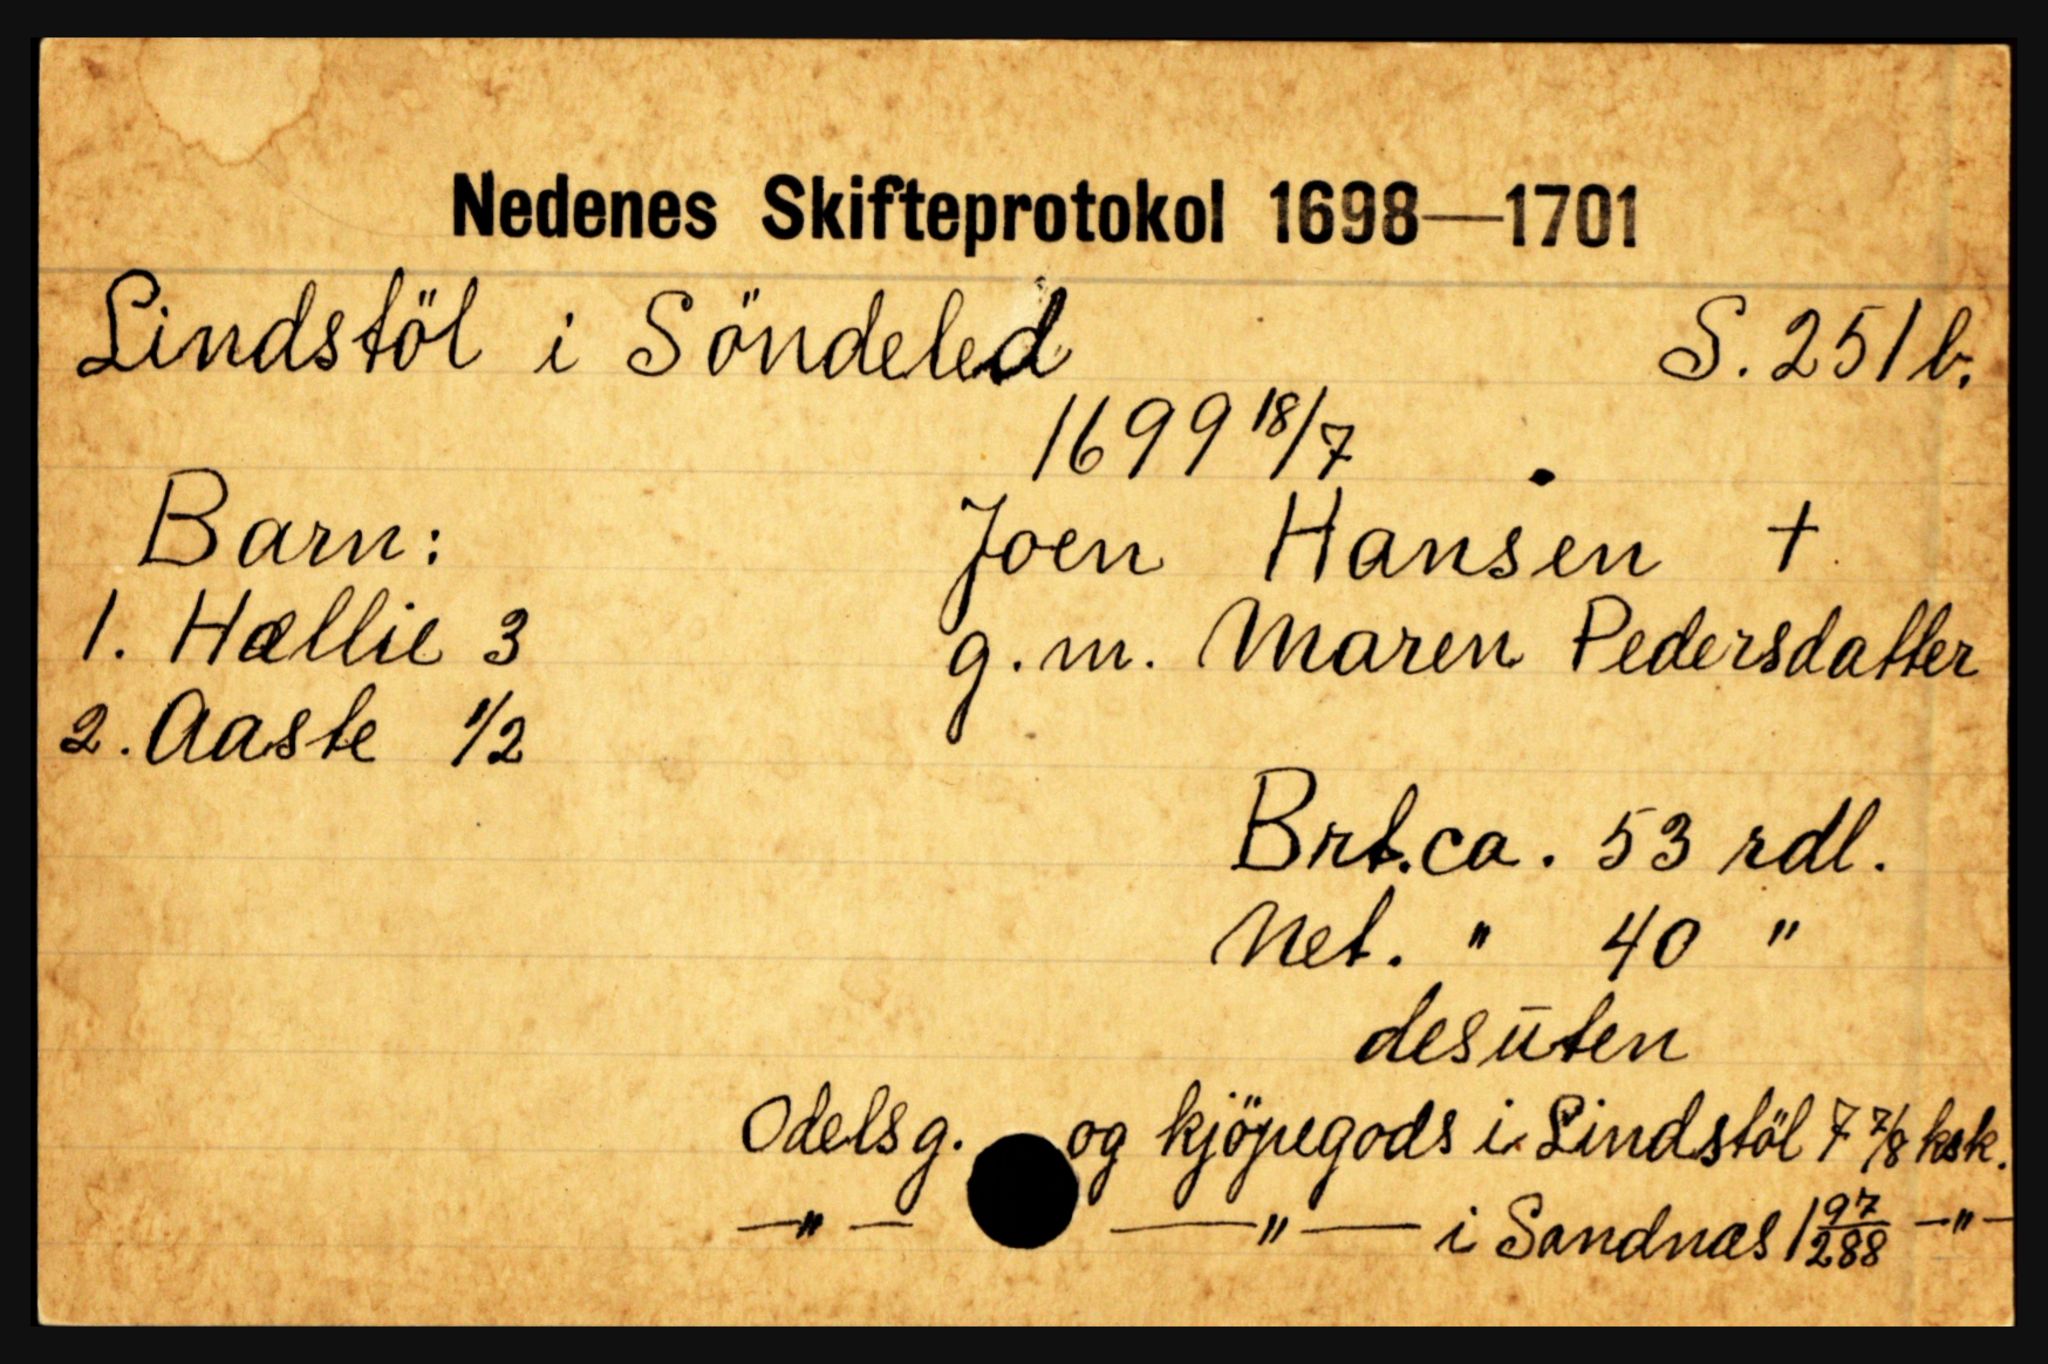 Nedenes Skifteprotokol 1698—1701
Lindstöl i Söndeled S. 251 b.
1699 18/7
Barn: Joen Hansen †
1. Hællie 3 g.m. Maren Pedersdatter
2. Aaste 1/2
Brt. ca. 53 rdl.
Net. " 40 "
desūten
Odelsg. og kjöpegods i Lindstöl 7 7/8 ksk.
—"— —"— i Sandnæs 1 97/288 —"—